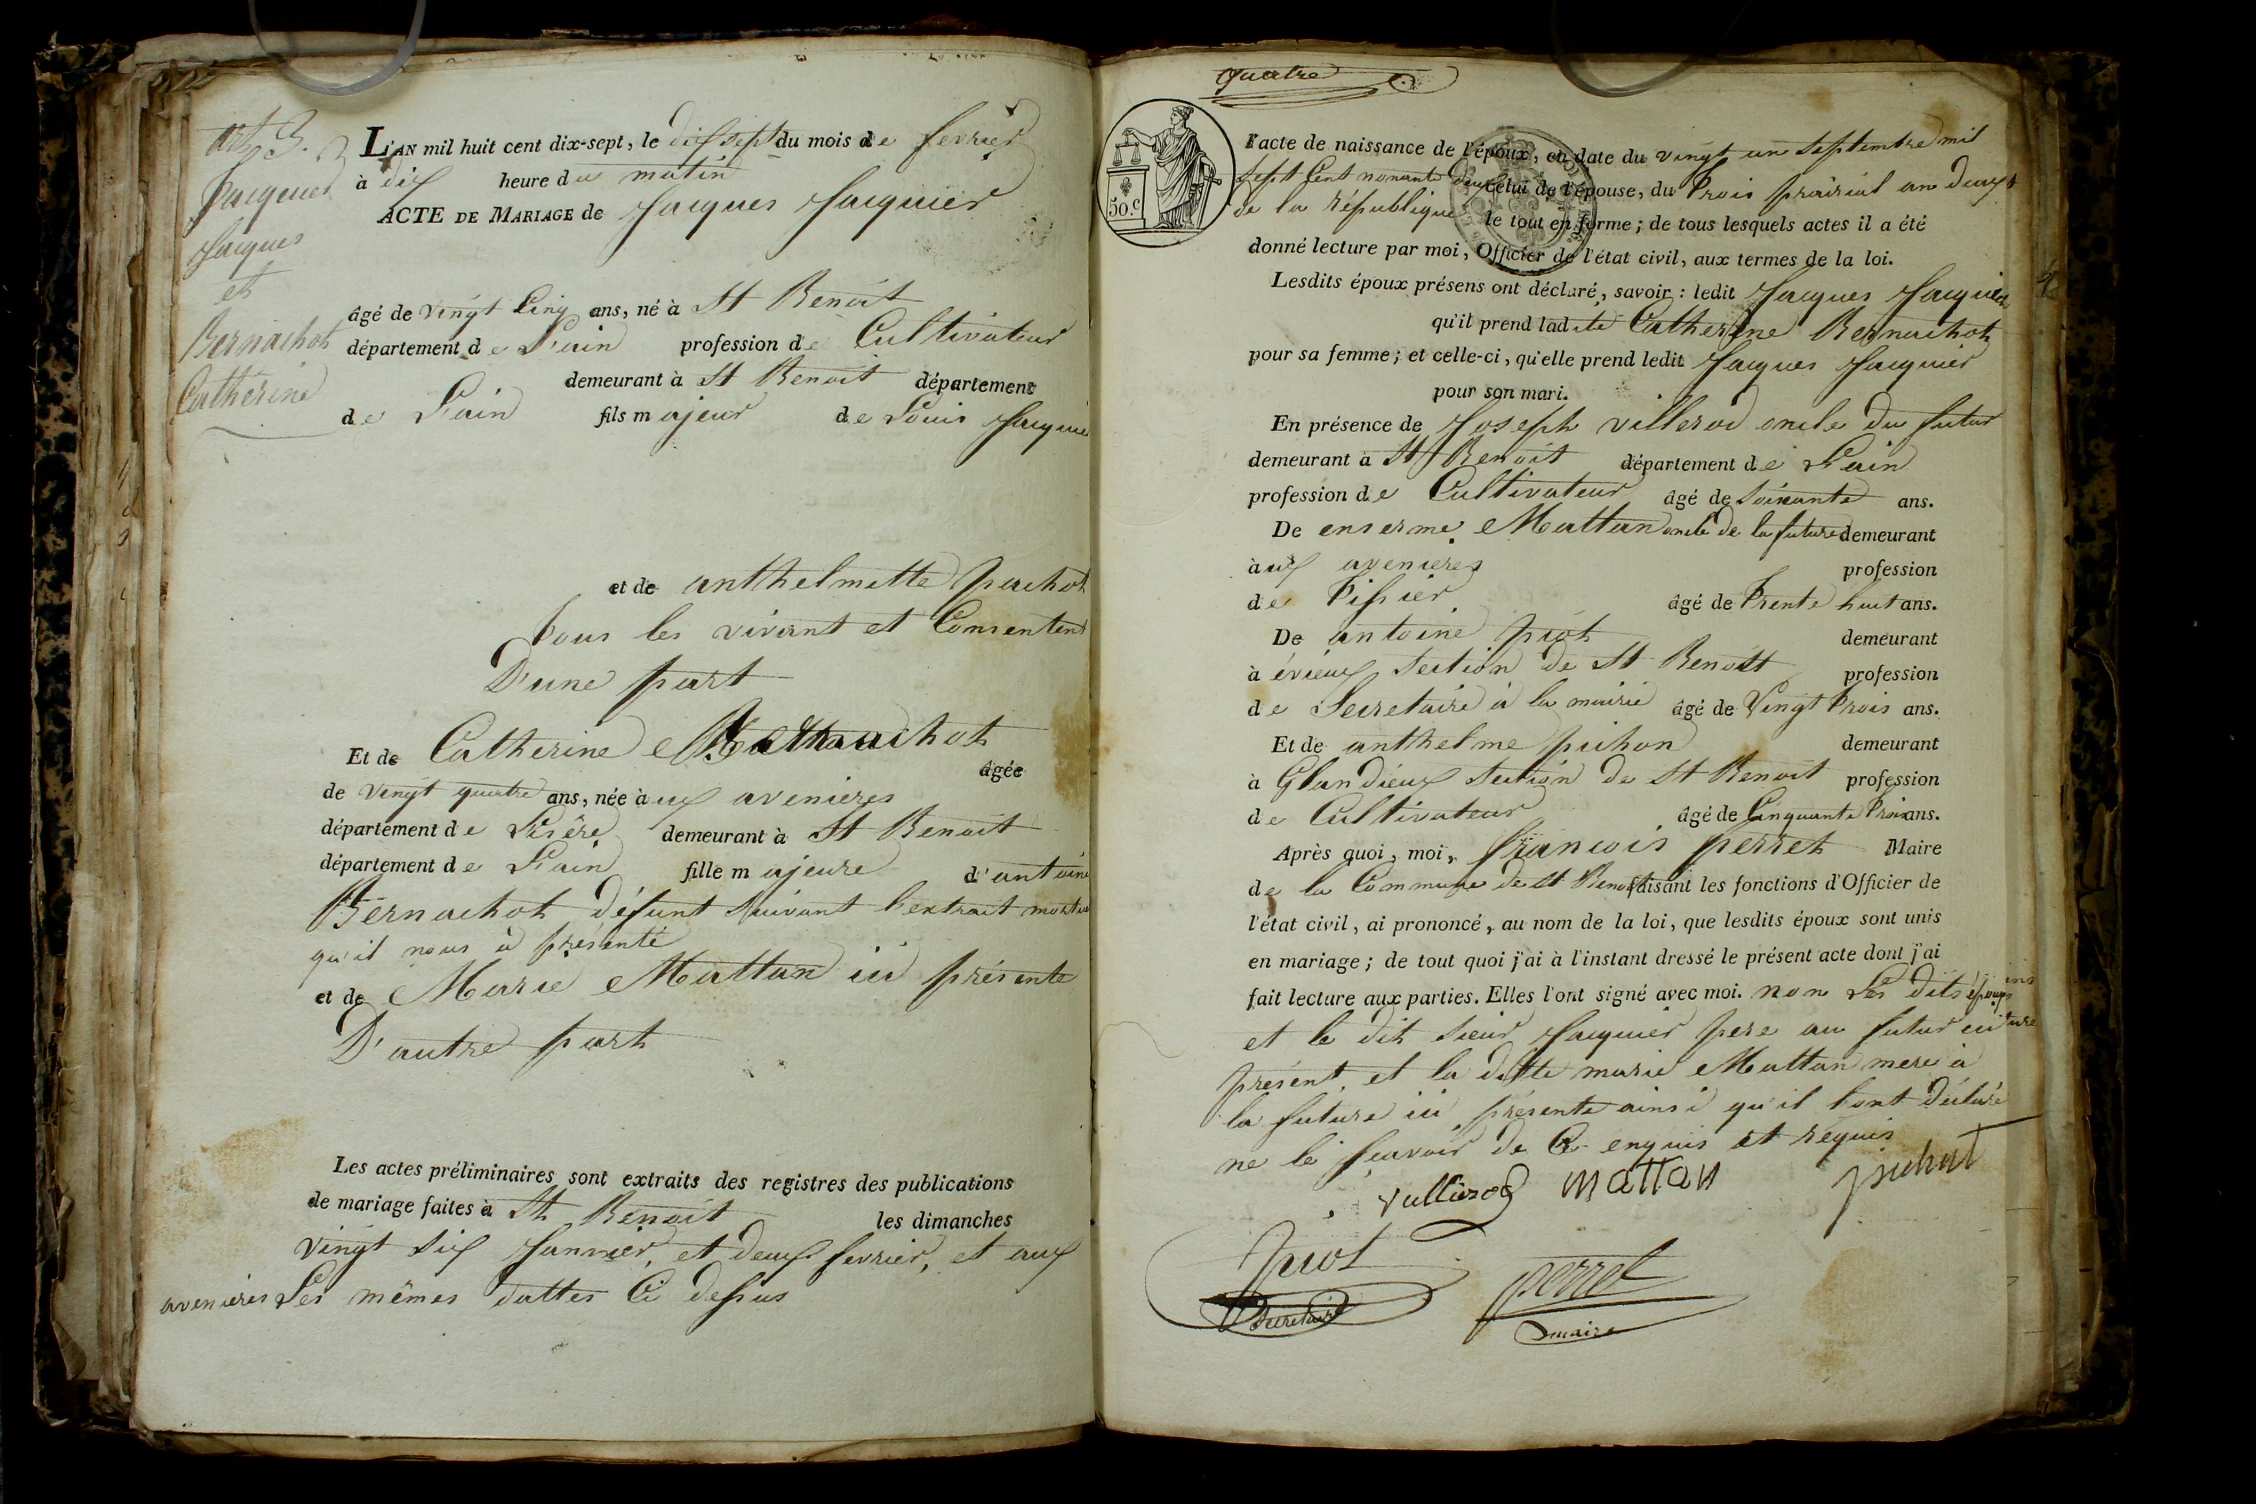 art 3.
Jacquier
Jacques
et
Bernachot
Catherine
L'AN mil huit cent dix-sept, le dix sept du mois de fevrier
à dix heure du matin
ACTE DE MARIAGE de Jacques Jacquier
âgé de vingt Cinq ans, né à St Benoit
département de L'ain profession de Cultivateur
demeurant à St Benoit département
de L'ain fils majeur de Louis Jacquier
et de anthelmette pachot
tous les vivant et Consentent
D'une part
Et de Catherine Bernachot
âgée
de vingt quatre ans, née à ux avenieres
département de L'isère demeurant à St Benoit
département de L'ain fille majeure d'antoine
Bernachot défunt suivant l'extrait mortu
qu'il nous à présenté
et de Marie Mattan ici présente
D'autre part
Les actes préliminaires sont extraits des registres des publications
de mariage faites à St Benoit les dimanches
vingt six Janvier, et deux fevrier, et aux
avenieres Les mêmes dattes Ci dessus
quatre
50.c
l'acte de naissance de l'époux, en date du vingt un septembre mil
sept Cent nonant deux celui de l'épouse, du trois prairial an deux
de la république le tout en forme; de tous lesquels actes il a été
donné lecture par moi, Officier de l'état civil, aux termes de la loi.
Lesdits époux présens ont déclaré, savoir: ledit Jacques Jacquier
qu'il prend ladite Catherine Bernachot
pour sa femme; et celle-ci, qu'elle prend ledit Jacques Jacquier
pour son mari.
En présence de Joseph villerod oncle du futur
demeurant à St Benoit département de L'ain
profession de Cultivateur âgé de Soixante ans.
De Mattan oncle de la future demeurant
à ux avenieres profession
de Tissier âgé de Trente huit ans.
De antoine piot demeurant
à évieux section de St Benoit profession
de Secretaire à la mairie âgé de Vingt trois ans.
Et de anthelme pichon demeurant
à Glandieux section de St Benoit profession
de Cultivateur âgé de Cinquante trois ans.
Après quoi, moi, françois perret Maire
de la Commune de St Benoit faisant les fonctions d'Officier de
l'état civil, ai prononcé, au nom de la loi, que lesdits époux sont unis
en mariage; de tout quoi j'ai à l'instant dressé le présent acte dont j'ai
fait lecture aux parties. Elles l'ont signé avec moi. non Les dits époux
et le dit sieur Jacquier pere au futur ici
présent, et la ditte marie Mattan mere à
la future ici présente ainsi qu'il l'ont déclaré
ne le scavoir de Ce enquis et requis
vullierod mattan pichot
piot perret
Secretaire maire